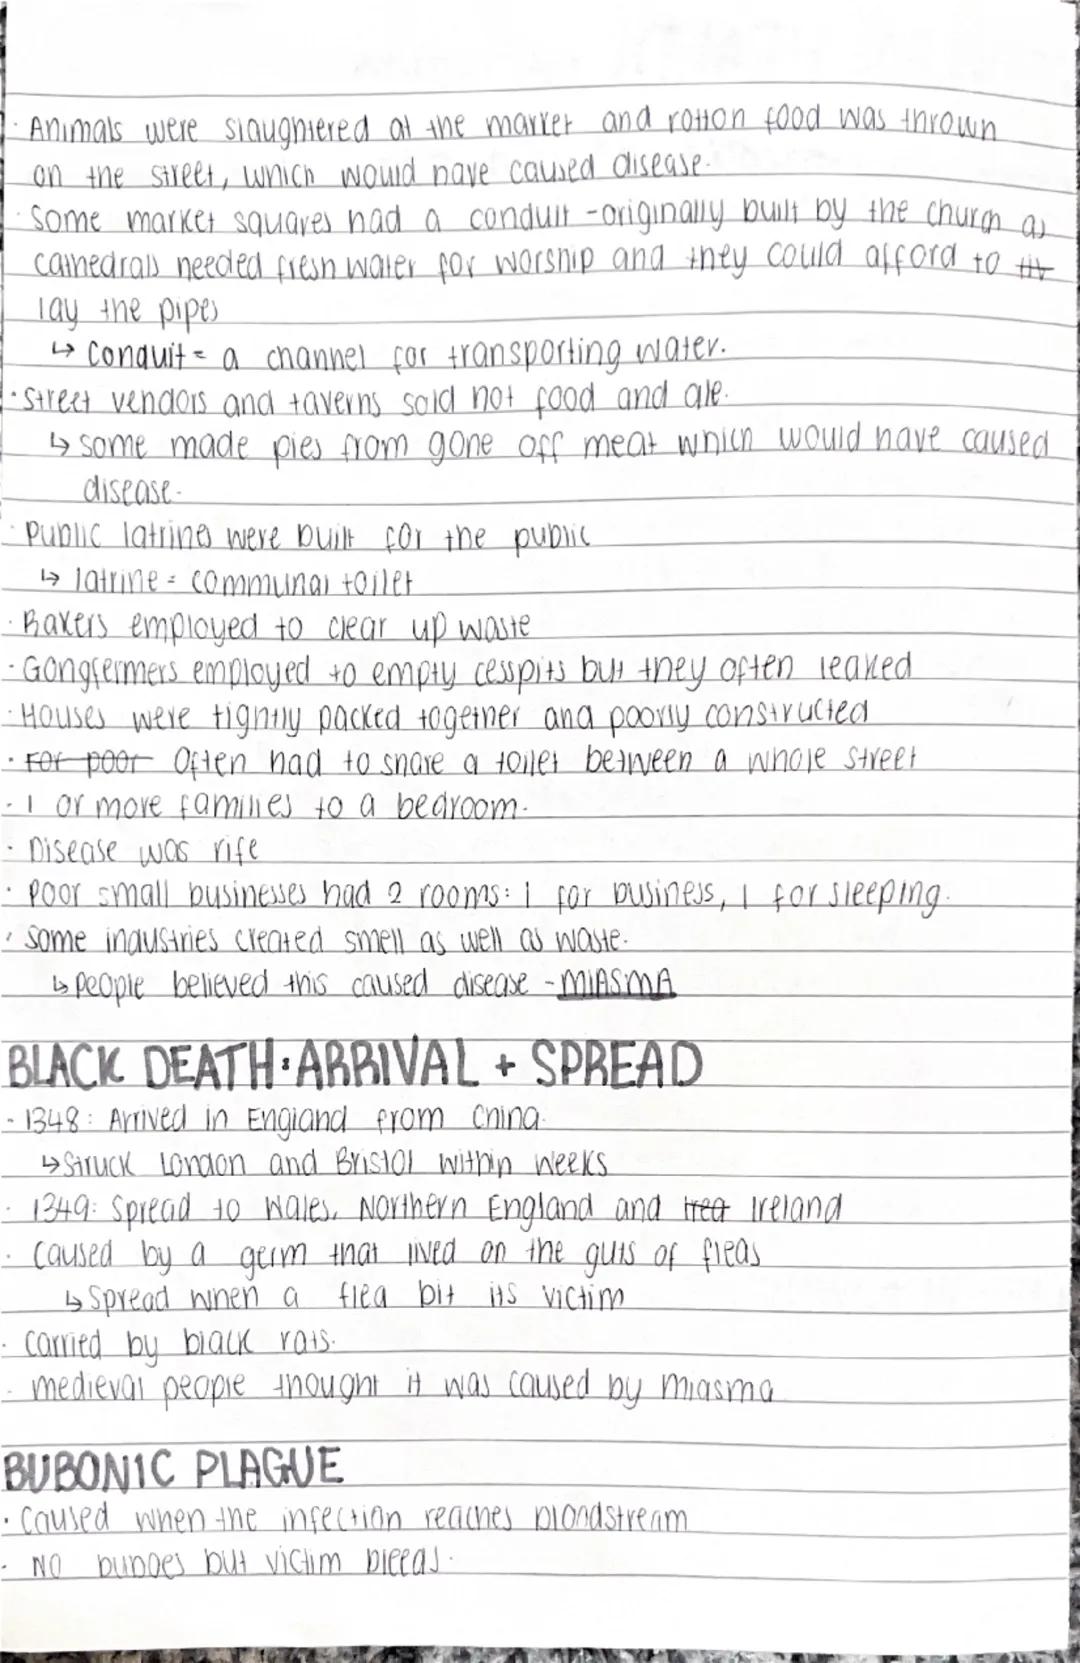 · Animals were slaughtered at the market and rotton food was thrown
on the street, which would have caused disease.
· Some market squares had a conduit - originally built by the church as
cathedrals needed fresh water for worship and they could afford to
lay the pipes
↳ Conduit = a channel for transporting water.
· Street vendors and taverns sold hot food and ale.
↳ some made pies from gone off meat which would have caused
disease.
· Public latrines were built for the public
↳ latrine = communal toilet
· Rakers employed to clear up waste
· Gongfermers employed to empty cesspits but they often leaked
· Houses were tightly packed together and poorly constructed
· For poor Often had to share a toilet between a whole street
· 1 or more families to a bedroom.
· Disease was rife
· Poor small businesses had 2 rooms: 1 for business, 1 for sleeping.
· Some industries created smell as well as waste.
↳ People believed this caused disease - MIASMA
BLACK DEATH: ARRIVAL + SPREAD
· 1348: Arrived in England from China.
↳ Struck London and Bristol within weeks
· 1349: Spread to Wales, Northern England and Ireland
· Caused by a germ that lived on the guts of fleas
↳ Spread when a flea bit its victim
· Carried by black rats.
· medieval people thought it was caused by miasma
BUBONIC PLAGUE
· Caused when the infection reaches bloodstream
· NO buboes but victim bleeds.